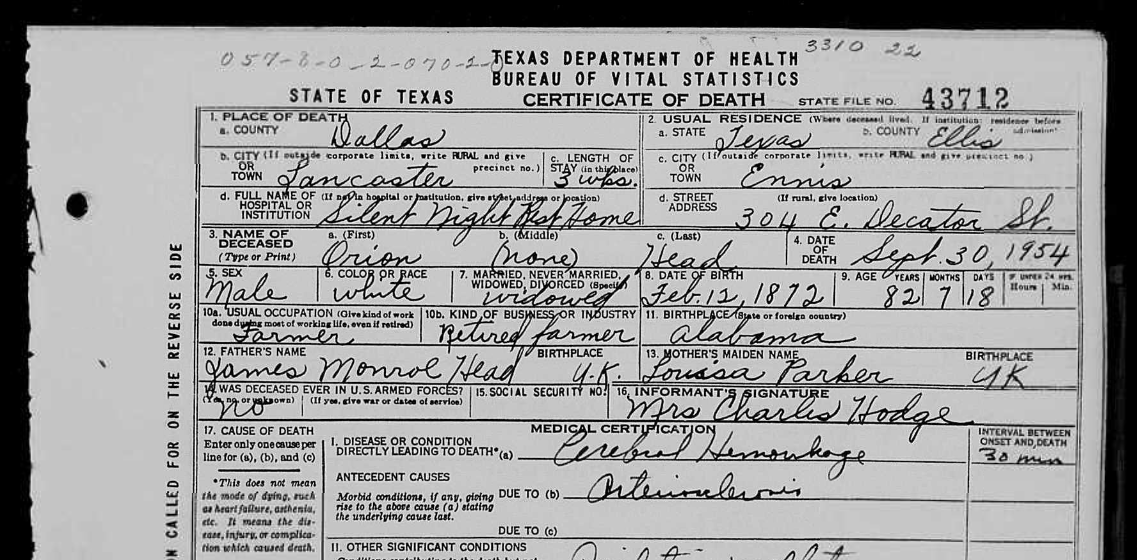 057-8-0-2-070-2-0
TEXAS DEPARTMENT OF HEALTH 3310 22
BUREAU OF VITAL STATISTICS
STATE OF TEXAS CERTIFICATE OF DEATH STATE FILE NO. 43712
1. PLACE OF DEATH 2. USUAL RESIDENCE (Where deceased lived. If institution: residence before admission)
a. COUNTY Dallas a. STATE Texas b. COUNTY Ellis
b. CITY (If outside corporate limits, write RURAL and give precinct no.) OR TOWN Lancaster c. LENGTH OF STAY (in this place) 3 wks. c. CITY (If outside corporate limits, write RURAL and give precinct no.) OR TOWN Ennis
d. FULL NAME OF (If not in hospital or institution, give street address or location) HOSPITAL OR INSTITUTION Silent Night Rest Home d. STREET ADDRESS (If rural, give location) 304 E. Decator St.
3. NAME OF DECEASED (Type or Print) a. (First) Orion b. (Middle) (none) c. (Last) Head 4. DATE OF DEATH Sept. 30, 1954
5. SEX Male 6. COLOR OR RACE white 7. MARRIED, NEVER MARRIED, WIDOWED, DIVORCED (Specify) widowed 8. DATE OF BIRTH Feb. 12, 1872 9. AGE YEARS 82 MONTHS 7 DAYS 18 IF UNDER 24 HRS. Hours Min.
10a. USUAL OCCUPATION (Give kind of work done during most of working life, even if retired) Farmer 10b. KIND OF BUSINESS OR INDUSTRY Retired farmer 11. BIRTHPLACE (State or foreign country) Alabama
12. FATHER'S NAME James Monroe Head BIRTHPLACE U.K. 13. MOTHER'S MAIDEN NAME Louisa Parker BIRTHPLACE UK
14. WAS DECEASED EVER IN U.S. ARMED FORCES? (Yes, no, or unknown) no (If yes, give war or dates of service) 15. SOCIAL SECURITY NO. 16. INFORMANT'S SIGNATURE Mrs Charlis Hodge
17. CAUSE OF DEATH
Enter only one cause per line for (a), (b), and (c)
*This does not mean
the mode of dying, such
as heart failure, asthenia,
etc. It means the dis-
ease, injury, or complica-
tion which caused death.
MEDICAL CERTIFICATION
INTERVAL BETWEEN ONSET AND DEATH
I. DISEASE OR CONDITION
DIRECTLY LEADING TO DEATH* (a) Cerebral Hemorrhage 30 min
ANTECEDENT CAUSES
Morbid conditions, if any, giving DUE TO (b) Arteriosclerosis
rise to the above cause (a) stating
the underlying cause last.
DUE TO (c)
II. OTHER SIGNIFICANT CONDITIONS
N CALLED FOR ON THE REVERSE SIDE